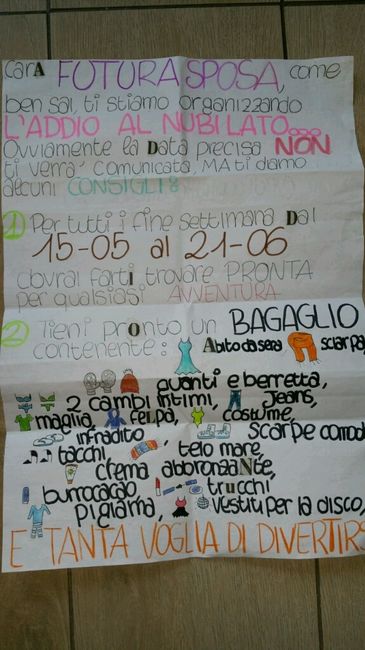 carA FUTURA SPOSA, come
ben sai, ti stiamo organizzando
L'ADDIO AL NUBILATO...
Ovviamente la Data precisa NON
ti verrà comunicata, MA ti diamo
alcuni CONSIGLI:
1) Per tutti i fine settimana Dal
15-05 al 21-06
dovrai farti trovare PRONTA
per qualsiasi AVVENTURA
2) Tieni pronto un BAGAGLIO
contenente: Abito da sera sciarpa,
guanti e berretta,
2 cambi intimi, Jeans,
maglia, felpa, costume,
infradito scarpe comode
tacchi, telo mare,
crema abbronzaNte,
burrocacao, trucchi
pigiama, vestiti per la disco,
E TANTA VOGLIA DI DIVERTIRS